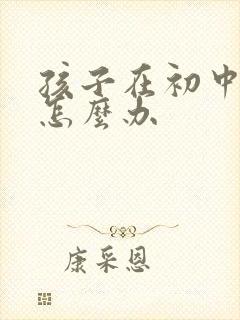 孩子在初中
怎麼办
康采恩